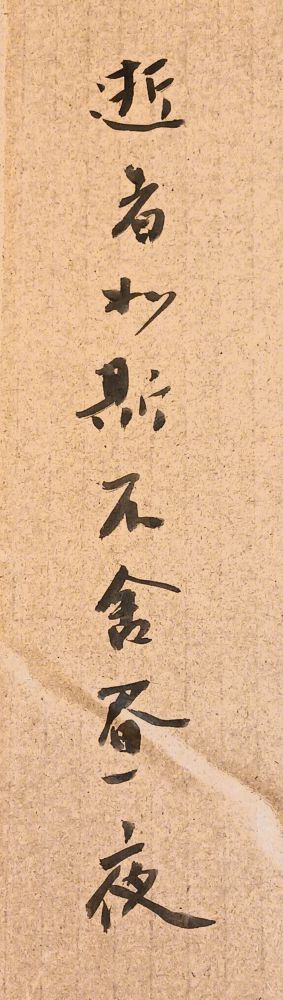 逝者如斯不舍昼夜